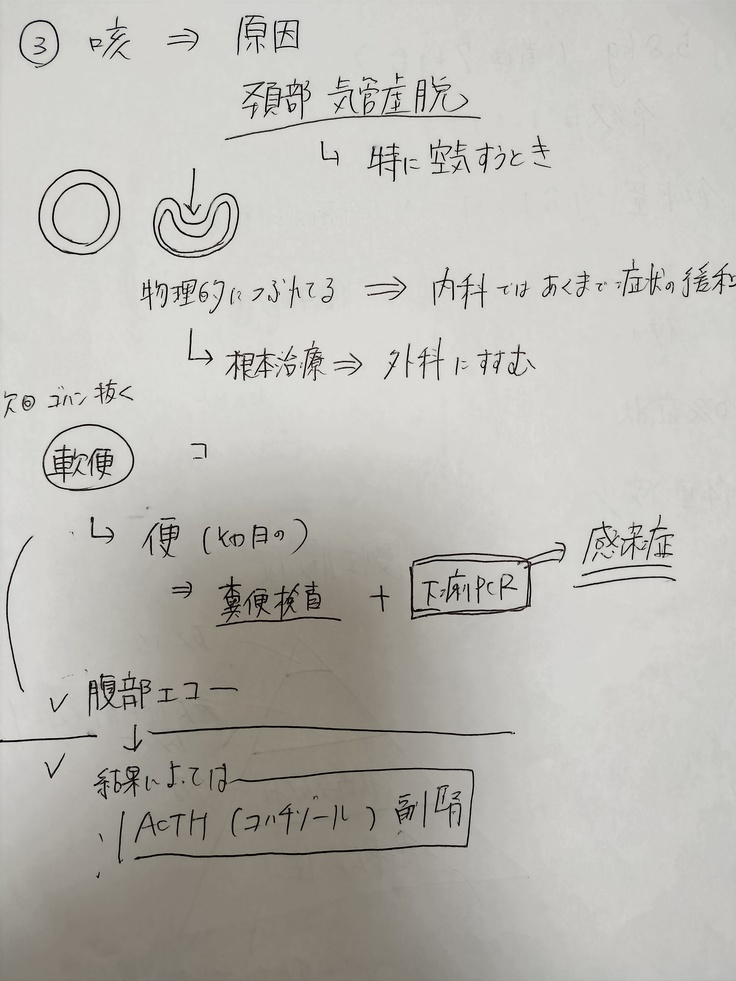 ③ 咳 ⇒ 原因
頚部 気管虚脱
↳ 特に 空気すうとき
物理的につぶれてる ⇒ 内科ではあくまで症状の緩和
↳ 根本治療 ⇒ 外科にすすむ
次回 ゴハン抜く
軟便 コ
↳ 便 (当日の)
⇒ 糞便検査 + 下痢PCR ⇒ 感染症
✓ 腹部エコー
↓
✓ 結果によっては
ACTH (コルチゾール) 副腎